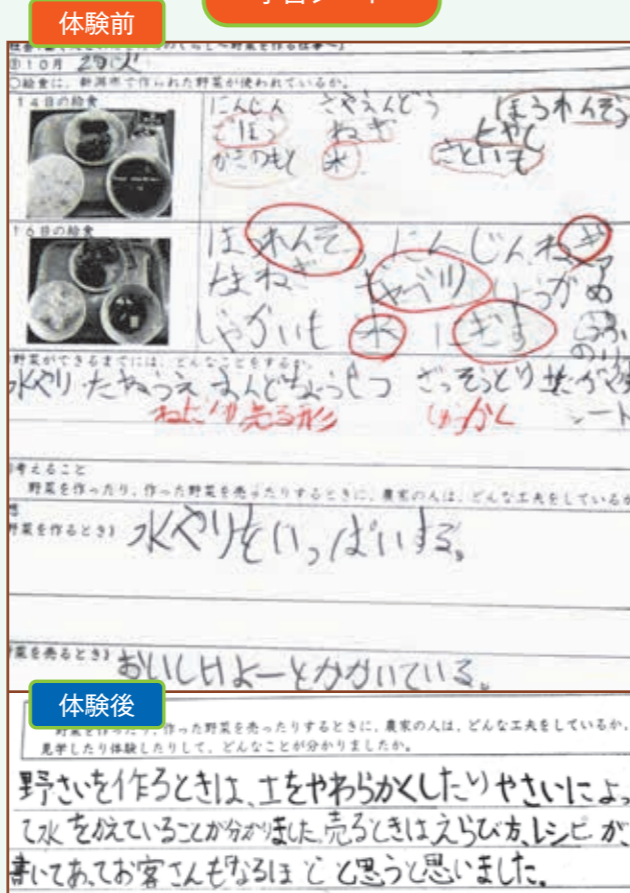 体験前
①10月 29日火
○給食に、新潟市で作られた野菜が使われているか。
14日の給食
にんじん さやえんどう ほうれんそう
ごぼう ねぎ もやし
かきのもと 米 さといも
16日の給食
ほうれんそう にんじん ねぎ
たまねぎ キャベツ しょうが
じゃがいも 米 にぎす
野菜ができるまでには、どんなことをするか。
水やり たねうえ おんどちょうせつ ざっそうとり
売る しゅうかく シート
考えること
野菜を作ったり、作った野菜を売ったりするときに、農家の人は、どんな工夫をしているか
菜を作るとき)
水やりをいっぱいする。
菜を売るとき)
おいしいよーとかかいている。
体験後
野菜を作ったり、作った野菜を売ったりするときに、農家の人は、どんな工夫をしているか。
見学したり体験したりして、どんなことが分かりましたか。
野さいを作るときは、土をやわらかくしたりやさいによっ
て水をかえていることが分かりました。売るときはえらび方、レシピが、
書いてあってお客さんもなるほどと思うと思いました。